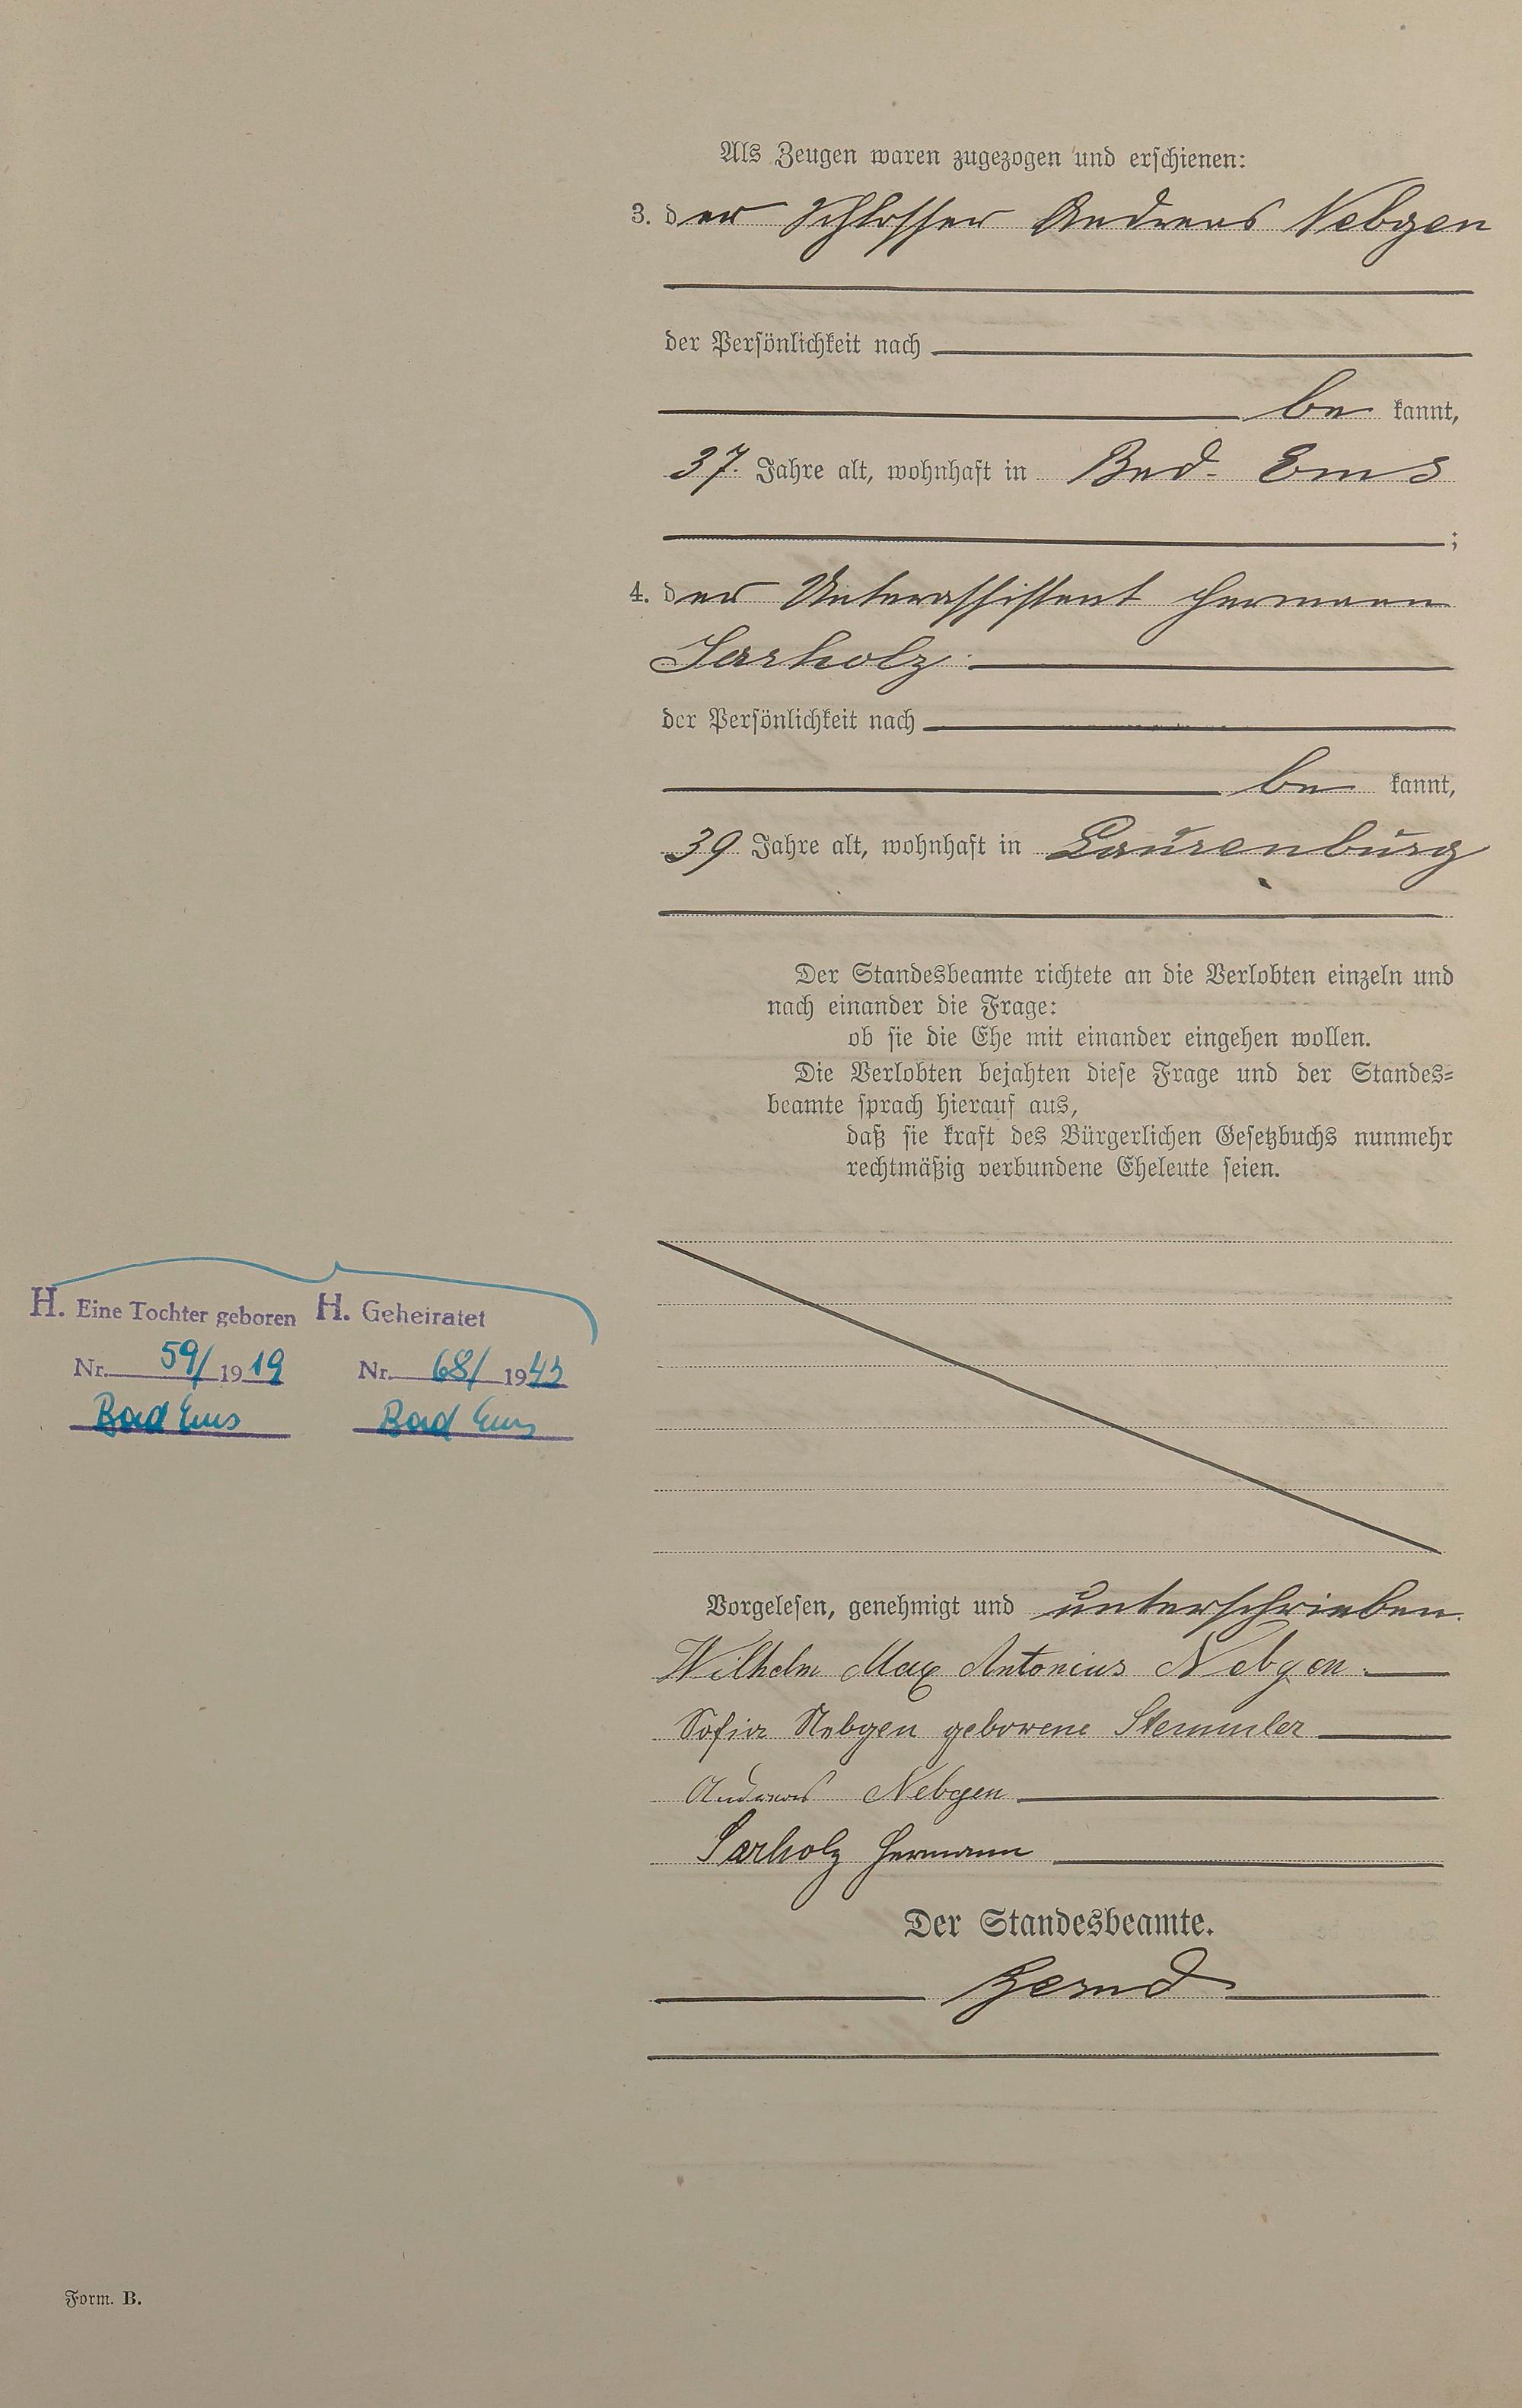 Als Zeugen waren zugezogen und erschienen:
3. der Schlosser Andreas Nebgen
der Persönlichkeit nach
be kannt,
37 Jahre alt, wohnhaft in Bad-Ems
;
4. der Unterassistent Hermann
Sarholz
der Persönlichkeit nach
be kannt,
39 Jahre alt, wohnhaft in Laurenburg
Der Standesbeamte richtete an die Verlobten einzeln und
nach einander die Frage:
ob sie die Ehe mit einander eingehen wollen.
Die Verlobten bejahten diese Frage und der Standes=
beamte sprach hierauf aus,
daß sie kraft des Bürgerlichen Gesetzbuchs nunmehr
rechtmäßig verbundene Eheleute seien.
H. Eine Tochter geboren
Nr. 59/1919
Bad Ems
H. Geheiratet
Nr. 68/1943
Bad Ems
Vorgelesen, genehmigt und unterschrieben.
Wilhelm Max Antonius Nebgen
Sofia Nebgen geborene Stemmler
Andreas Nebgen
Sarholz Hermann
Der Standesbeamte.
Form. B.